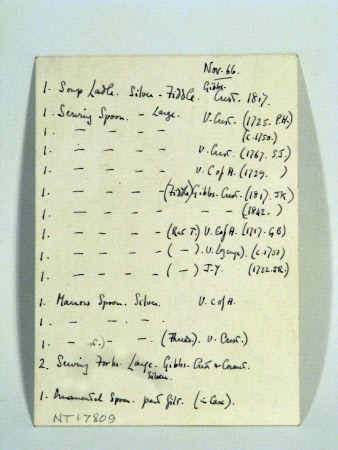 Nov. 66.
1. Soup Ladle. Silver - Fiddle. Gibbs. Crest. 1817.
1. Serving Spoon. - Large. V. Crest. (1725. P.H.)
1. — — — — (c. 1750.)
1. — — — — V. Crest. (1767. S.J.)
1. — — — — V. C of A. (1729. )
1. — — — — (Fiddle) Gibbs. Crest. (1817. JK)
1. — — — — — — (1842. )
1. — — — — (Rat T.) V. C of A. (1717. G B)
1. — — — — ( — ) V. Lozenge. (c. 1750)
1. — — — — ( — ) J.Y. (1722. JR.)
1. Marrow Spoon. Silver. V. C of A.
1. — — — —
1. — — (Thread). V. Crest.)
2. Serving Forks. Large. Gibbs. Crest & Coronet.
Silver.
1. Ornamental Spoon. part gilt. (in Case).
NT17809